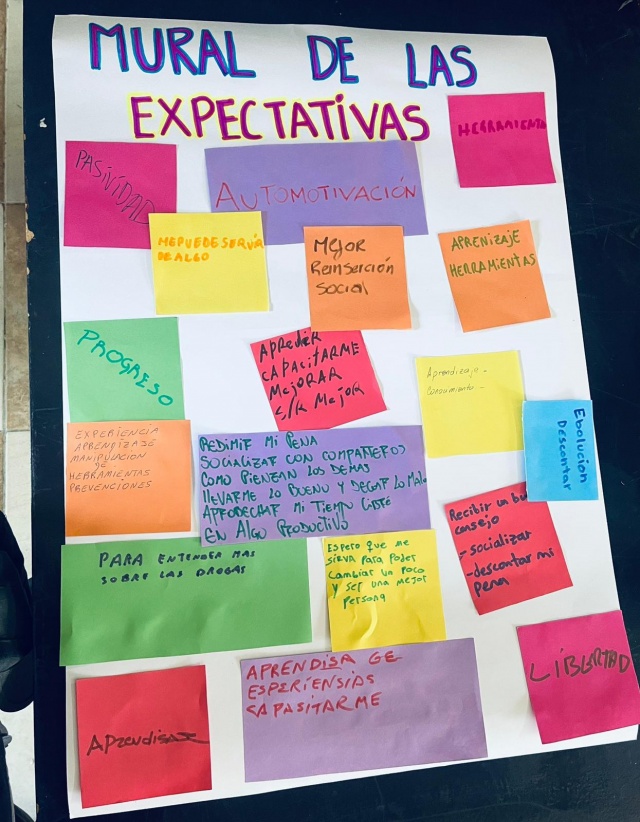 MURAL DE LAS
EXPECTATIVAS
HERRAMIENTO
PASIVIDAD
AUTOMOTIVACIÓN
MEPUEDESERVIR
DEALGO
MEJOR
Reinserción
Social
APRENIZAJE
HERRAMIENTAS
PROGRESO
APREDER
CAPACITARME
MEJORAR
SER MEJOR
Aprendizaje -
Conocimiento -
Ebolución
Descontar
EXPERIENCIA
APRENDIZAJE
MANIPULACION
DE
HERRAMIENTAS
PREVENCIONES
REDIMIR MI PENA
SOCIALIZAR CON COMPAÑEROS
COMO PIENZAN LOS DEMAS
LLEVARME LO BUENO Y DEGAR LO MALO
APRODECHAR MI TIEMPO LIBRE
EN ALGO PRODUCTIVO
Recibir un
consejo
-socializar
-descontar mi
pena
PARA ENTENDER MAS
SOBRE LAS DROGAS
Espero que me
sirva para poder
cambiar un poco
y ser una mejor
persona
LIBERTAD
APRENDISA GE
ESPERIENSIAS
CAPASITARME
Aprendisaje